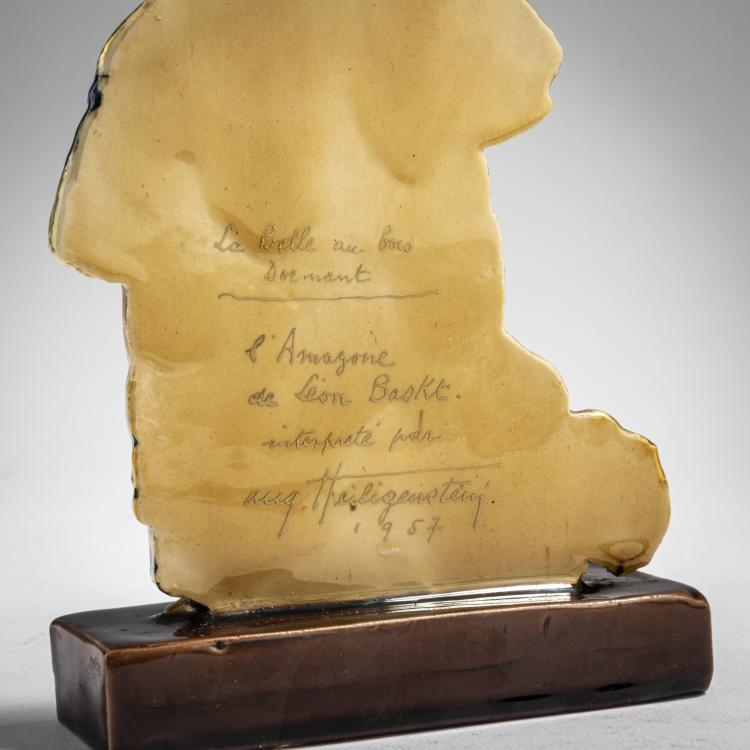 La Belle au bois
Dormant
l'Amazone
de Léon Baskt.
interpreté par
aug. Heiligenstein
1957